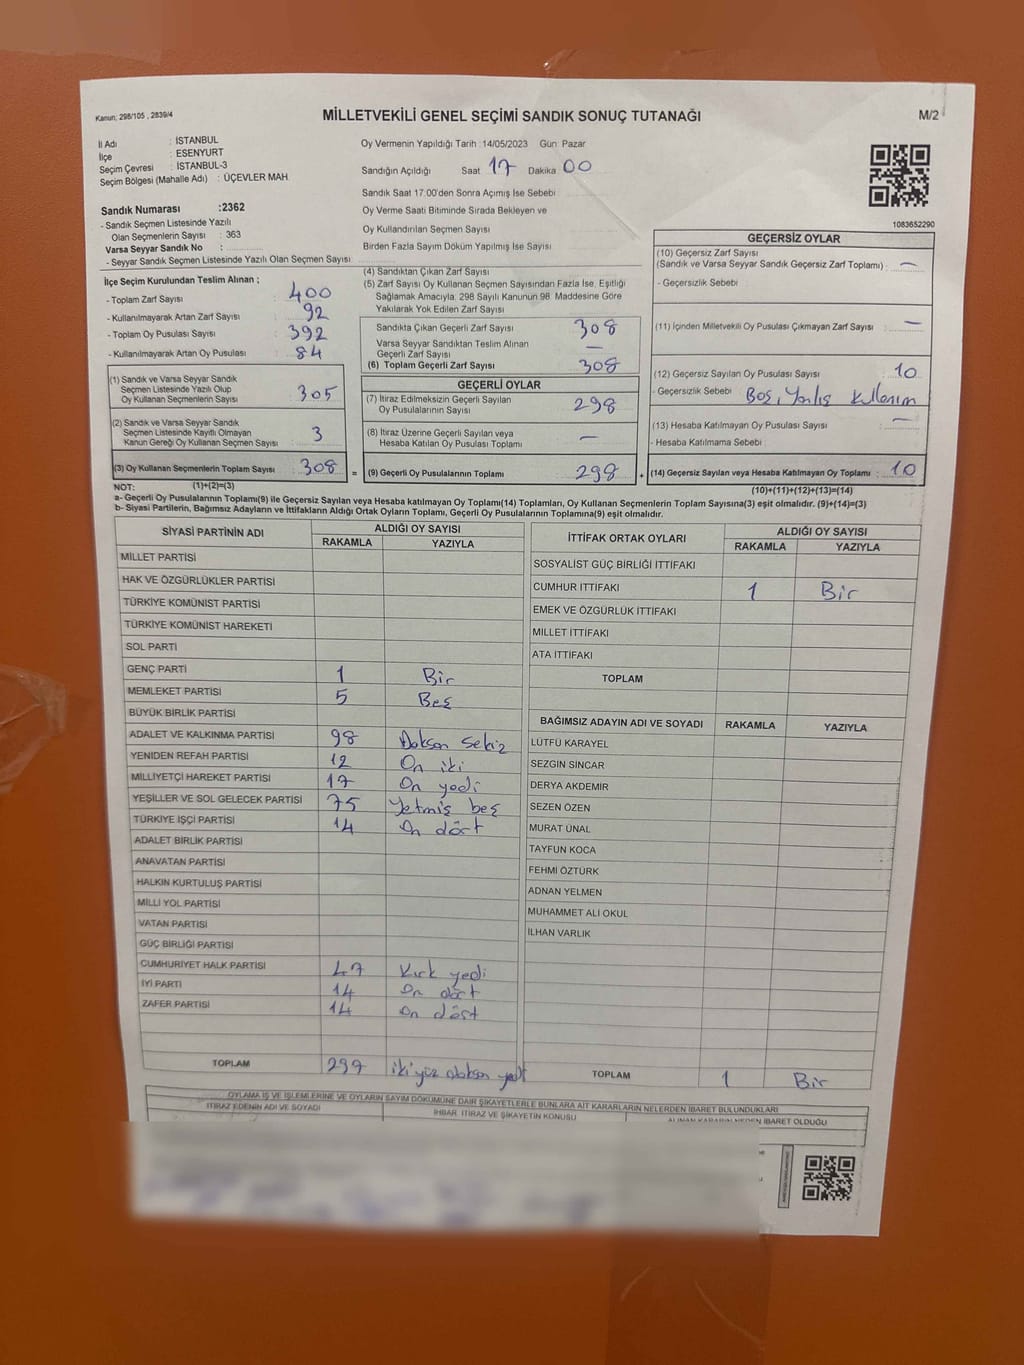 Kanun: 298/105 , 2839/4
MİLLETVEKİLİ GENEL SEÇİMİ SANDIK SONUÇ TUTANAĞI
M/2
İl Adı : İSTANBUL
İlçe : ESENYURT
Seçim Çevresi : İSTANBUL-3
Seçim Bölgesi (Mahalle Adı) : ÜÇEVLER MAH.
Sandık Numarası :2362
- Sandık Seçmen Listesinde Yazılı
Olan Seçmenlerin Sayısı : 363
Varsa Seyyar Sandık No :
- Seyyar Sandık Seçmen Listesinde Yazılı Olan Seçmen Sayısı :
Oy Vermenin Yapıldığı Tarih :14/05/2023 Gün: Pazar
Sandığın Açıldığı Saat 17 Dakika 00
Sandık Saat 17.00'den Sonra Açımış İse Sebebi
Oy Verme Saati Bitiminde Sırada Bekleyen ve
Oy Kullandırılan Seçmen Sayısı
Birden Fazla Sayım Döküm Yapılmış İse Sayısı
1083652290
İlçe Seçim Kurulundan Teslim Alınan ;
- Toplam Zarf Sayısı : 400
- Kullanılmayarak Artan Zarf Sayısı : 92
- Toplam Oy Pusulası Sayısı : 392
- Kullanılmayarak Artan Oy Pusulası : 84
(1) Sandık ve Varsa Seyyar Sandık
Seçmen Listesinde Yazılı Olup
Oy Kullanan Seçmenlerin Sayısı : 305
(2) Sandık ve Varsa Seyyar Sandık
Seçmen Listesinde Kayıtlı Olmayan
Kanun Gereği Oy Kullanan Seçmen Sayısı : 3
(3) Oy Kullanan Seçmenlerin Toplam Sayısı : 308
(1)+(2)=(3)
(4) Sandıktan Çıkan Zarf Sayısı
(5) Zarf Sayısı Oy Kullanan Seçmen Sayısından Fazla İse, Eşitliği
Sağlamak Amacıyla; 298 Sayılı Kanunun 98. Maddesine Göre
Yakılarak Yok Edilen Zarf Sayısı
Sandıkta Çıkan Geçerli Zarf Sayısı 308
Varsa Seyyar Sandıktan Teslim Alınan
Geçerli Zarf Sayısı —
(6) Toplam Geçerli Zarf Sayısı 308
GEÇERLİ OYLAR
(7) İtiraz Edilmeksizin Geçerli Sayılan
Oy Pusulalarının Sayısı 298
(8) İtiraz Üzerine Geçerli Sayılan veya
Hesaba Katılan Oy Pusulası Toplamı —
= (9) Geçerli Oy Pusulalarının Toplamı 298 +
GEÇERSİZ OYLAR
(10) Geçersiz Zarf Sayısı
(Sandık ve Varsa Seyyar Sandık Geçersiz Zarf Toplamı) : —
- Geçersizlik Sebebi :
(11) İçinden Milletvekili Oy Pusulası Çıkmayan Zarf Sayısı : —
(12) Geçersiz Sayılan Oy Pusulası Sayısı : 10
- Geçersizlik Sebebi : Boş, Yanlış kullanım
(13) Hesaba Katılmayan Oy Pusulası Sayısı : —
- Hesaba Katılmama Sebebi :
(14) Geçersiz Sayılan veya Hesaba Katılmayan Oy Toplamı : 10
(10)+(11)+(12)+(13)=(14)
NOT:
a- Geçerli Oy Pusulalarının Toplamı(9) ile Geçersiz Sayılan veya Hesaba katılmayan Oy Toplamı(14) Toplamları, Oy Kullanan Seçmenlerin Toplam Sayısına(3) eşit olmalıdır. (9)+(14)=(3)
b- Siyasi Partilerin, Bağımsız Adayların ve İttifakların Aldığı Oyların Toplamı, Geçerli Oy Pusulalarının Toplamına(9) eşit olmalıdır.
SİYASİ PARTİNİN ADI ALDIĞI OY SAYISI
RAKAMLA YAZIYLA
MİLLET PARTİSİ
HAK VE ÖZGÜRLÜKLER PARTİSİ
TÜRKİYE KOMÜNİST PARTİSİ
TÜRKİYE KOMÜNİST HAREKETİ
SOL PARTİ
GENÇ PARTİ 1 Bir
MEMLEKET PARTİSİ 5 Beş
BÜYÜK BİRLİK PARTİSİ
ADALET VE KALKINMA PARTİSİ 98 Doksan sekiz
YENİDEN REFAH PARTİSİ 12 On iki
MİLLİYETÇİ HAREKET PARTİSİ 17 On yedi
YEŞİLLER VE SOL GELECEK PARTİSİ 75 Yetmiş beş
TÜRKİYE İŞÇİ PARTİSİ 14 On dört
ADALET BİRLİK PARTİSİ
ANAVATAN PARTİSİ
HALKIN KURTULUŞ PARTİSİ
MİLLİ YOL PARTİSİ
VATAN PARTİSİ
GÜÇ BİRLİĞİ PARTİSİ
CUMHURİYET HALK PARTİSİ 47 Kırk yedi
İYİ PARTİ 14 On dört
ZAFER PARTİSİ 14 On dört
TOPLAM 297 iki yüz doksan yedi
İTTİFAK ORTAK OYLARI ALDIĞI OY SAYISI
RAKAMLA YAZIYLA
SOSYALİST GÜÇ BİRLİĞİ İTTİFAKI
CUMHUR İTTİFAKI 1 Bir
EMEK VE ÖZGÜRLÜK İTTİFAKI
MİLLET İTTİFAKI
ATA İTTİFAKI
TOPLAM
BAĞIMSIZ ADAYIN ADI VE SOYADI RAKAMLA YAZIYLA
LÜTFÜ KARAYEL
SEZGİN SİNCAR
DERYA AKDEMİR
SEZEN ÖZEN
MURAT ÜNAL
TAYFUN KOCA
FEHMİ ÖZTÜRK
ADNAN YELMEN
MUHAMMET ALİ OKUL
İLHAN VARLIK
TOPLAM 1 Bir
OYLAMA İŞ VE İŞLEMLERİNE VE OYLARIN SAYIM DÖKÜMÜNE DAİR ŞİKAYETLERLE BUNLARA AİT KARARLARIN NELERDEN İBARET BULUNDUKLARI
İTİRAZ EDENİN ADI VE SOYADI İHBAR, İTİRAZ VE ŞİKAYETİN KONUSU ALINAN KARARIN NEDEN İBARET OLDUĞU